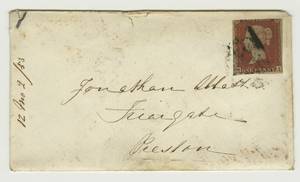 12 Mo 2 /53
Jonathan Abbatt
Friargate
Preston
ONE PENNY